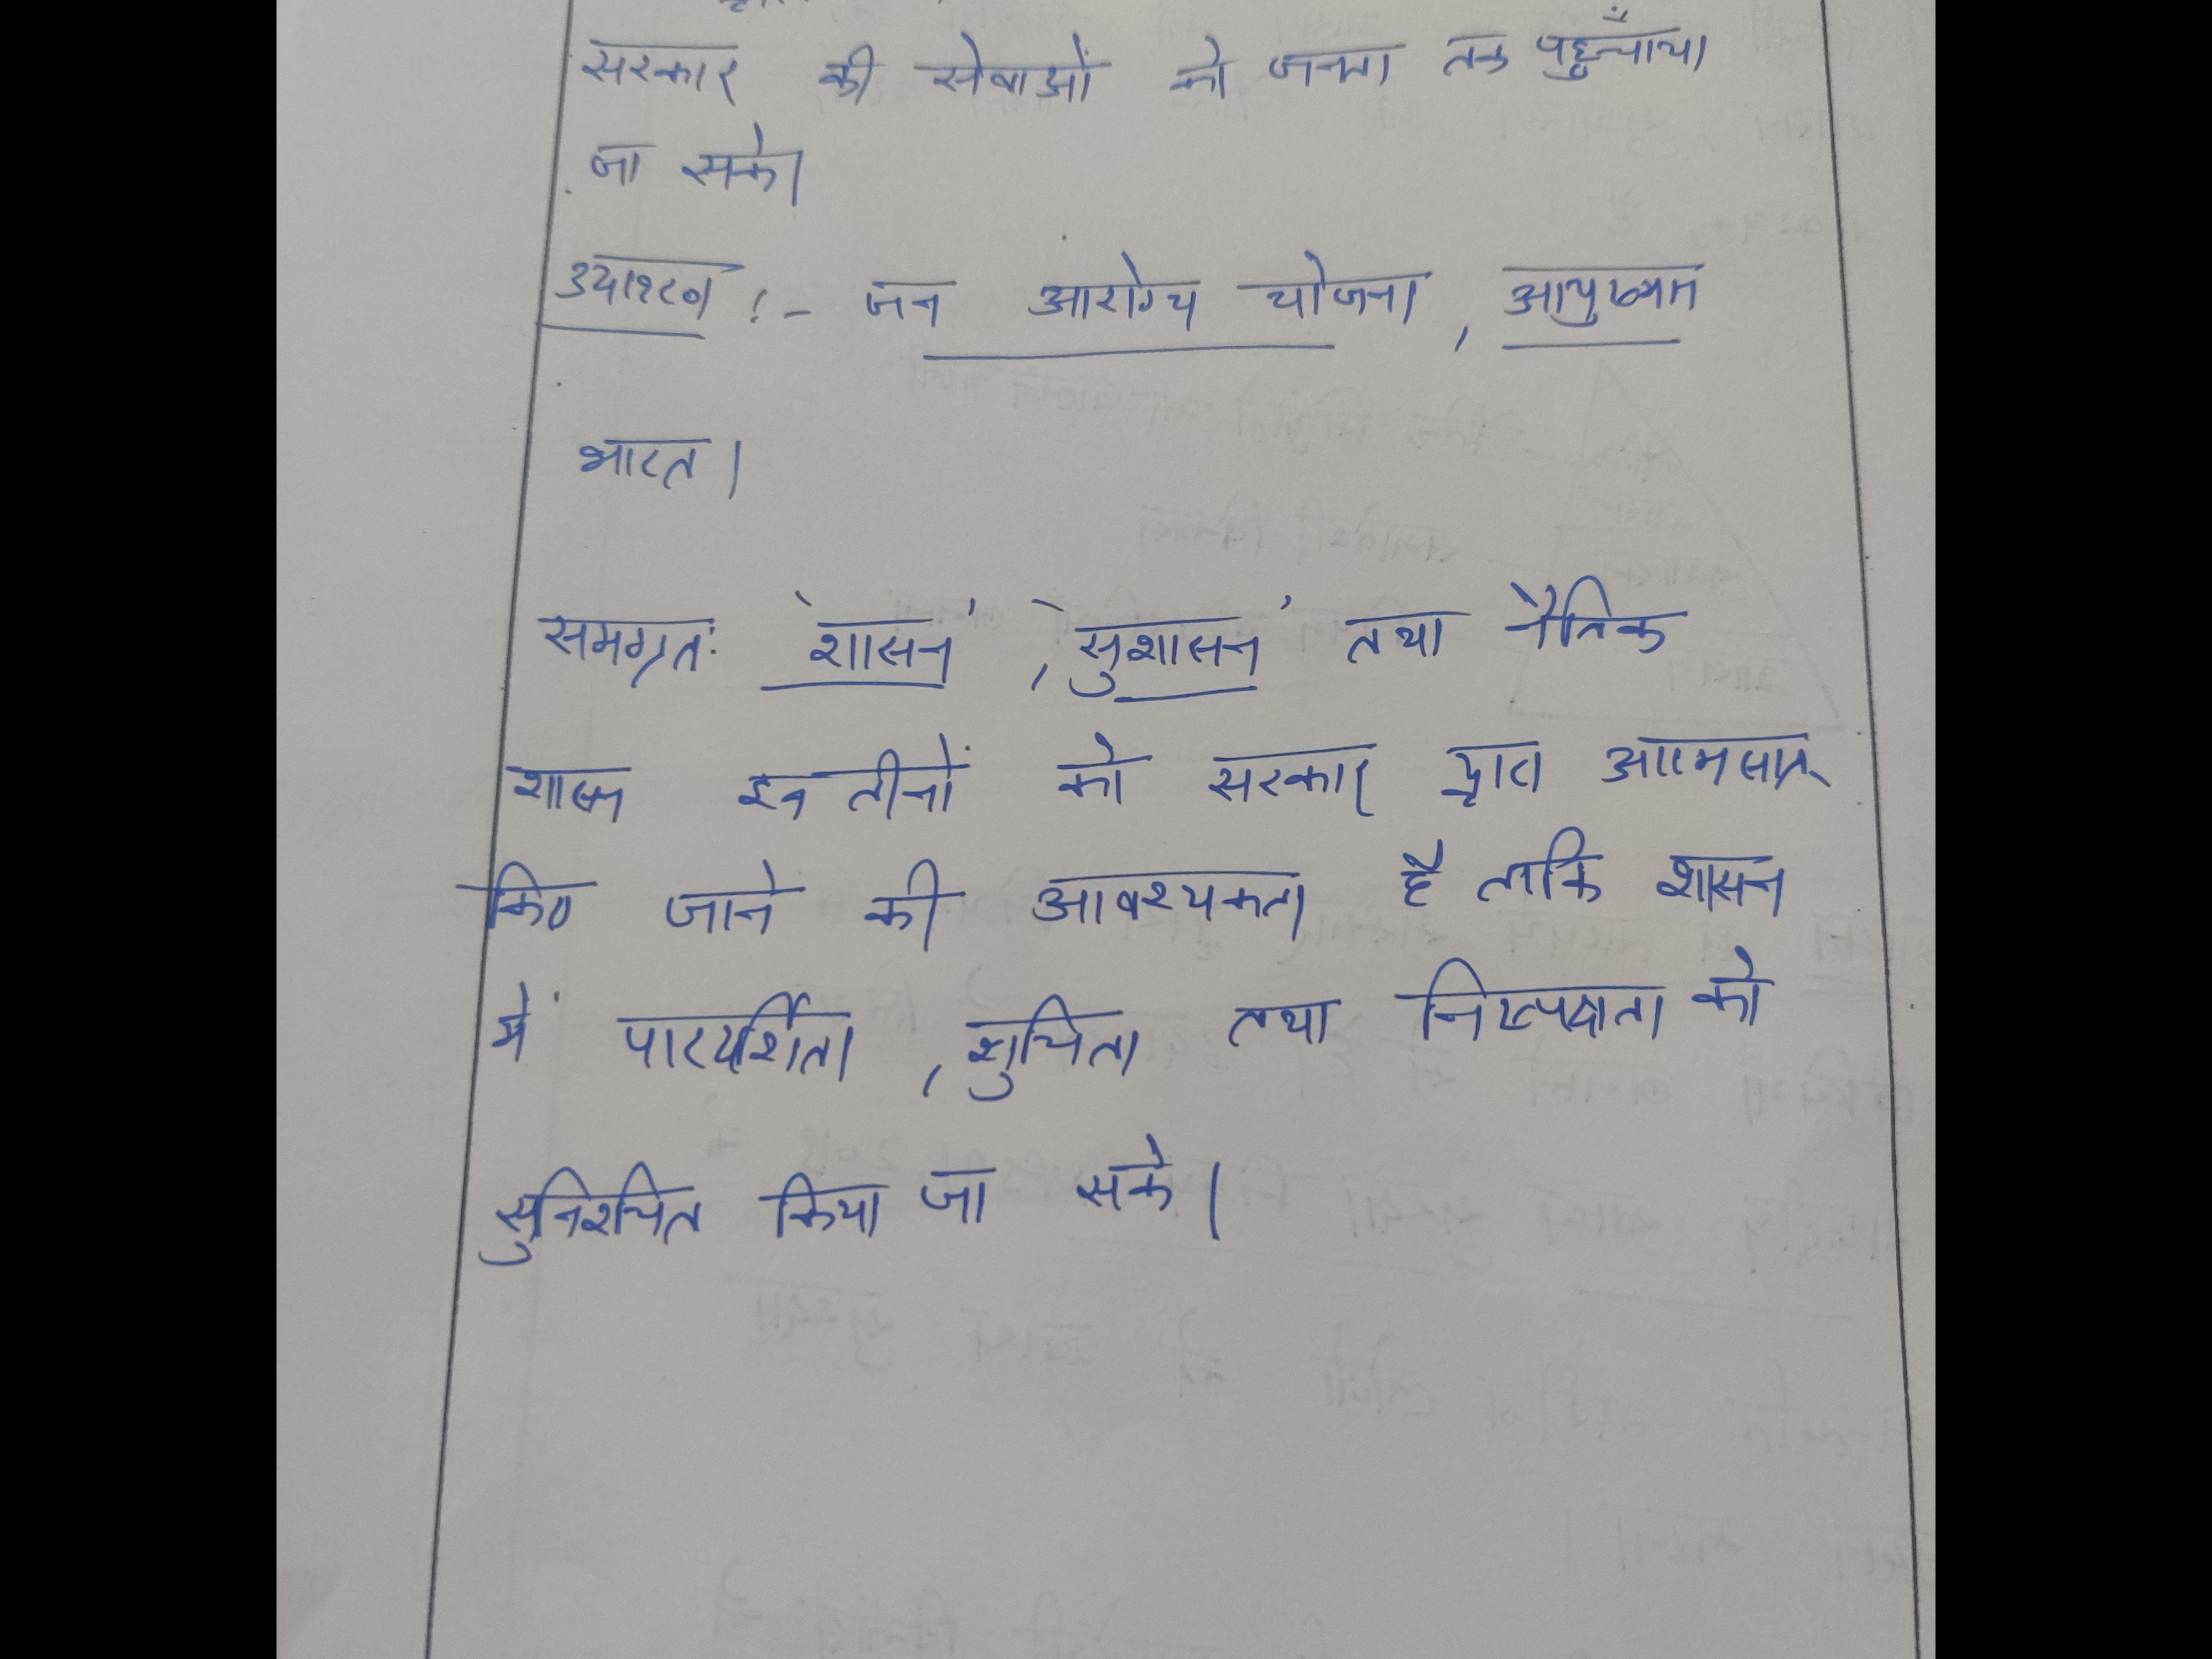 सरकार की सेवाओं को जनता तक पहुँचाया
जा सके।
उदाहरण :- जन आरोग्य योजना, आयुष्मान
भारत।
समग्रतः 'शासन', 'सुशासन' तथा नैतिक
शासन इन तीनों को सरकार द्वारा आत्मसात्
किए जाने की आवश्यकता है ताकि शासन
में पारदर्शिता, शुचिता तथा निष्पक्षता को
सुनिश्चित किया जा सके।